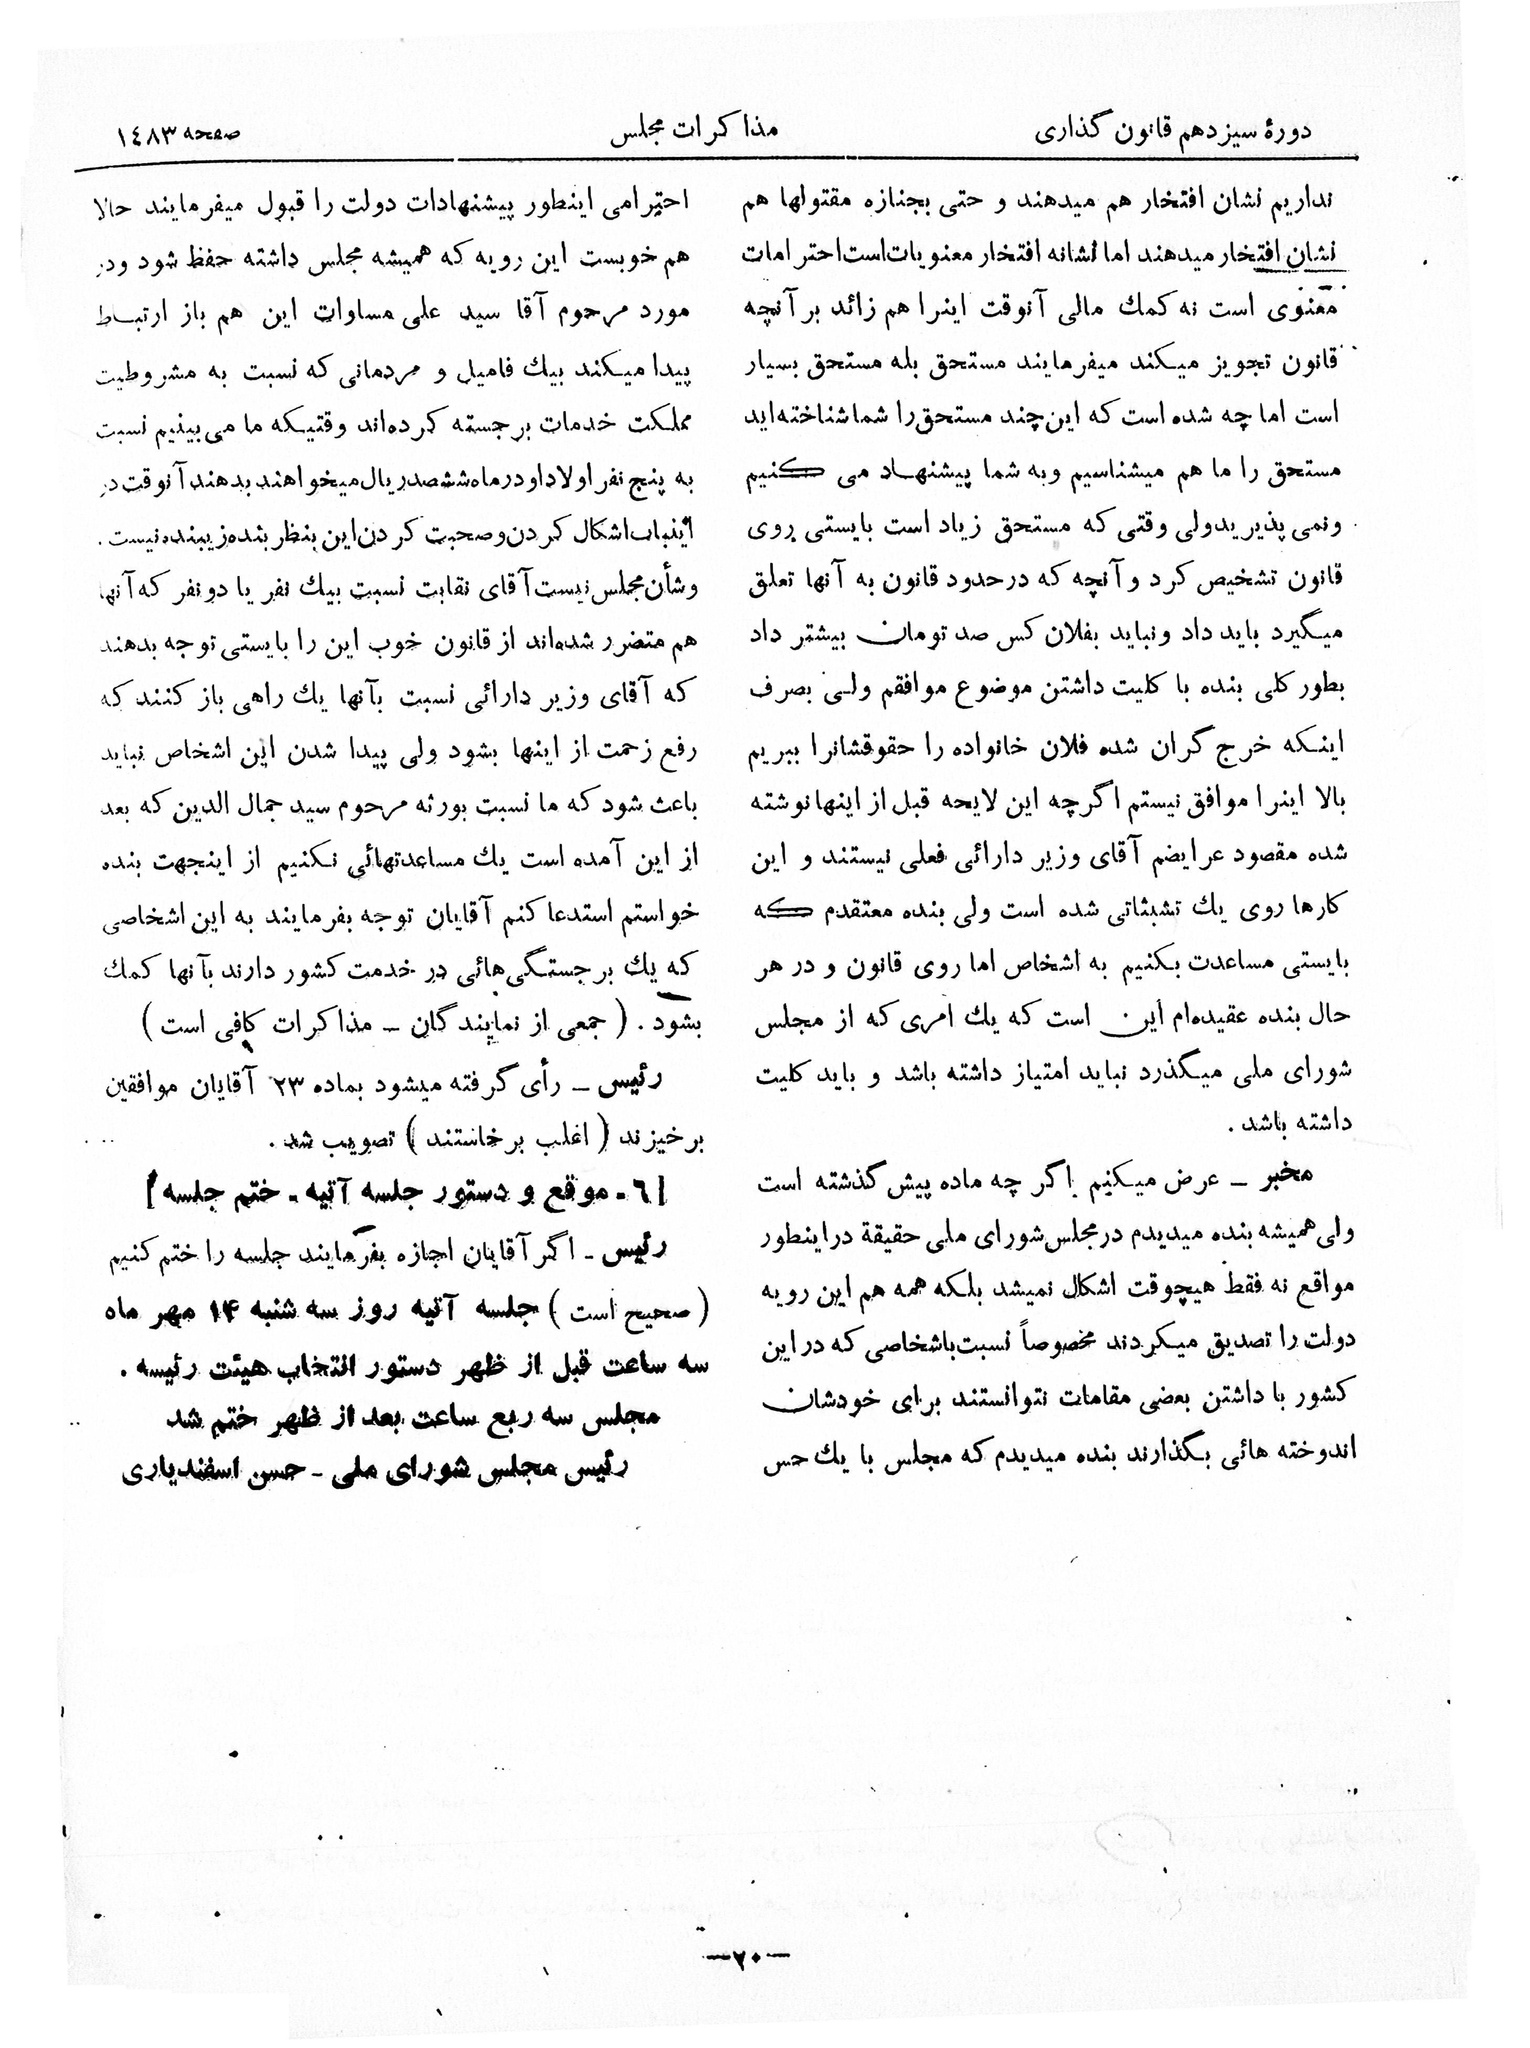 دورهٔ سیزدهم قانون گذاری
مذاکرات مجلس
صفحه ۱٤۸۳
نداریم نشان افتخار هم میدهند و حتی بجنازه مقتولها هم
نشان افتخار میدهند اما نشانه افتخار معنویات است احترامات
معنوی است نه کمك مالی آنوقت اینرا هم زائد بر آنچه
قانون تجویز میکند میفرمایند مستحق بله مستحق بسیار
است اما چه شده است که این چند مستحق را شما شناخته‌اید
مستحق را ما هم میشناسیم وبه شما پیشنهاد می کنیم
ونمی پذیرید ولی وقتی که مستحق زیاد است بایستی روی
قانون تشخیص کرد و آنچه که در حدود قانون به آنها تعلق
میگیرد باید داد و نباید بفلان کس صد تومان بیشتر داد
بطور کلی بنده با کلیت داشتن موضوع موافقم ولی بصرف
اینکه خرج گران شده فلان خانواده را حقوقشانرا ببریم
بالا اینرا موافق نیستم اگرچه این لایحه قبل از اینها نوشته
شده مقصود عرایضم آقای وزیر دارائی فعلی نیستند و این
کارها روی یك تشبثاتی شده است ولی بنده معتقدم که
بایستی مساعدت بکنیم به اشخاص اما روی قانون و در هر
حال بنده عقیده‌ام این است که یك امری که از مجلس
شورای ملی میگذرد نباید امتیاز داشته باشد و باید کلیت
داشته باشد .
مخبر ـ عرض میکنیم اگر چه ماده پیش گذشته است
ولی همیشه بنده میدیدم در مجلس شورای ملی حقیقة در اینطور
مواقع نه فقط هیچوقت اشکال نمیشد بلکه همه هم این رویه
دولت را تصدیق میکردند مخصوصاً نسبت باشخاصی که در این
کشور با داشتن بعضی مقامات نتوانستند برای خودشان
اندوخته هائی بگذارند بنده میدیدم که مجلس با یك حس
احترامی اینطور پیشنهادات دولت را قبول میفرمایند حالا
هم خوبست این رویه که همیشه مجلس داشته حفظ شود ودر
مورد مرحوم آقا سید علی مساوات این هم باز ارتباط
پیدا میکند بیك فامیل و مردمانی که نسبت به مشروطیت
مملکت خدمات برجسته کرده‌اند وقتیکه ما می‌بینیم نسبت
به پنج نفر اولاد او در ماه ششصد ریال میخواهند بدهند آنوقت در
اینباب اشکال کردن و صحبت کردن این بنظر بنده زیبنده نیست .
و شأن مجلس نیست آقای نقابت نسبت بیك نفر یا دو نفر که آنها
هم متضرر شده‌اند از قانون خوب این را بایستی توجه بدهند
که آقای وزیر دارائی نسبت بآنها یك راهی باز کنند که
رفع زحمت از اینها بشود ولی پیدا شدن این اشخاص نباید
باعث شود که ما نسبت بورثه مرحوم سید جمال الدین که بعد
از این آمده است یك مساعدتهائی نکنیم از اینجهت بنده
خواستم استدعا کنم آقایان توجه بفرمایند به این اشخاصی
که یك برجستگی‌هائی در خدمت کشور دارند بآنها کمك
بشود . ( جمعی از نمایندگان ـ مذاکرات کافی است )
رئیس ـ رأی گرفته میشود بماده ۲۳ آقایان موافقین
برخیزند ( اغلب برخاستند ) تصویب شد .
[ ٦ ـ موقع و دستور جلسه آتیه ـ ختم جلسه ]
رئیس ـ اگر آقایان اجازه بفرمایند جلسه را ختم کنیم
( صحیح است ) جلسه آتیه روز سه شنبه ۱۴ مهر ماه
سه ساعت قبل از ظهر دستور انتخاب هیئت رئیسه .
مجلس سه ربع ساعت بعد از ظهر ختم شد
رئیس مجلس شورای ملی ـ حسن اسفندیاری
—۲۰—